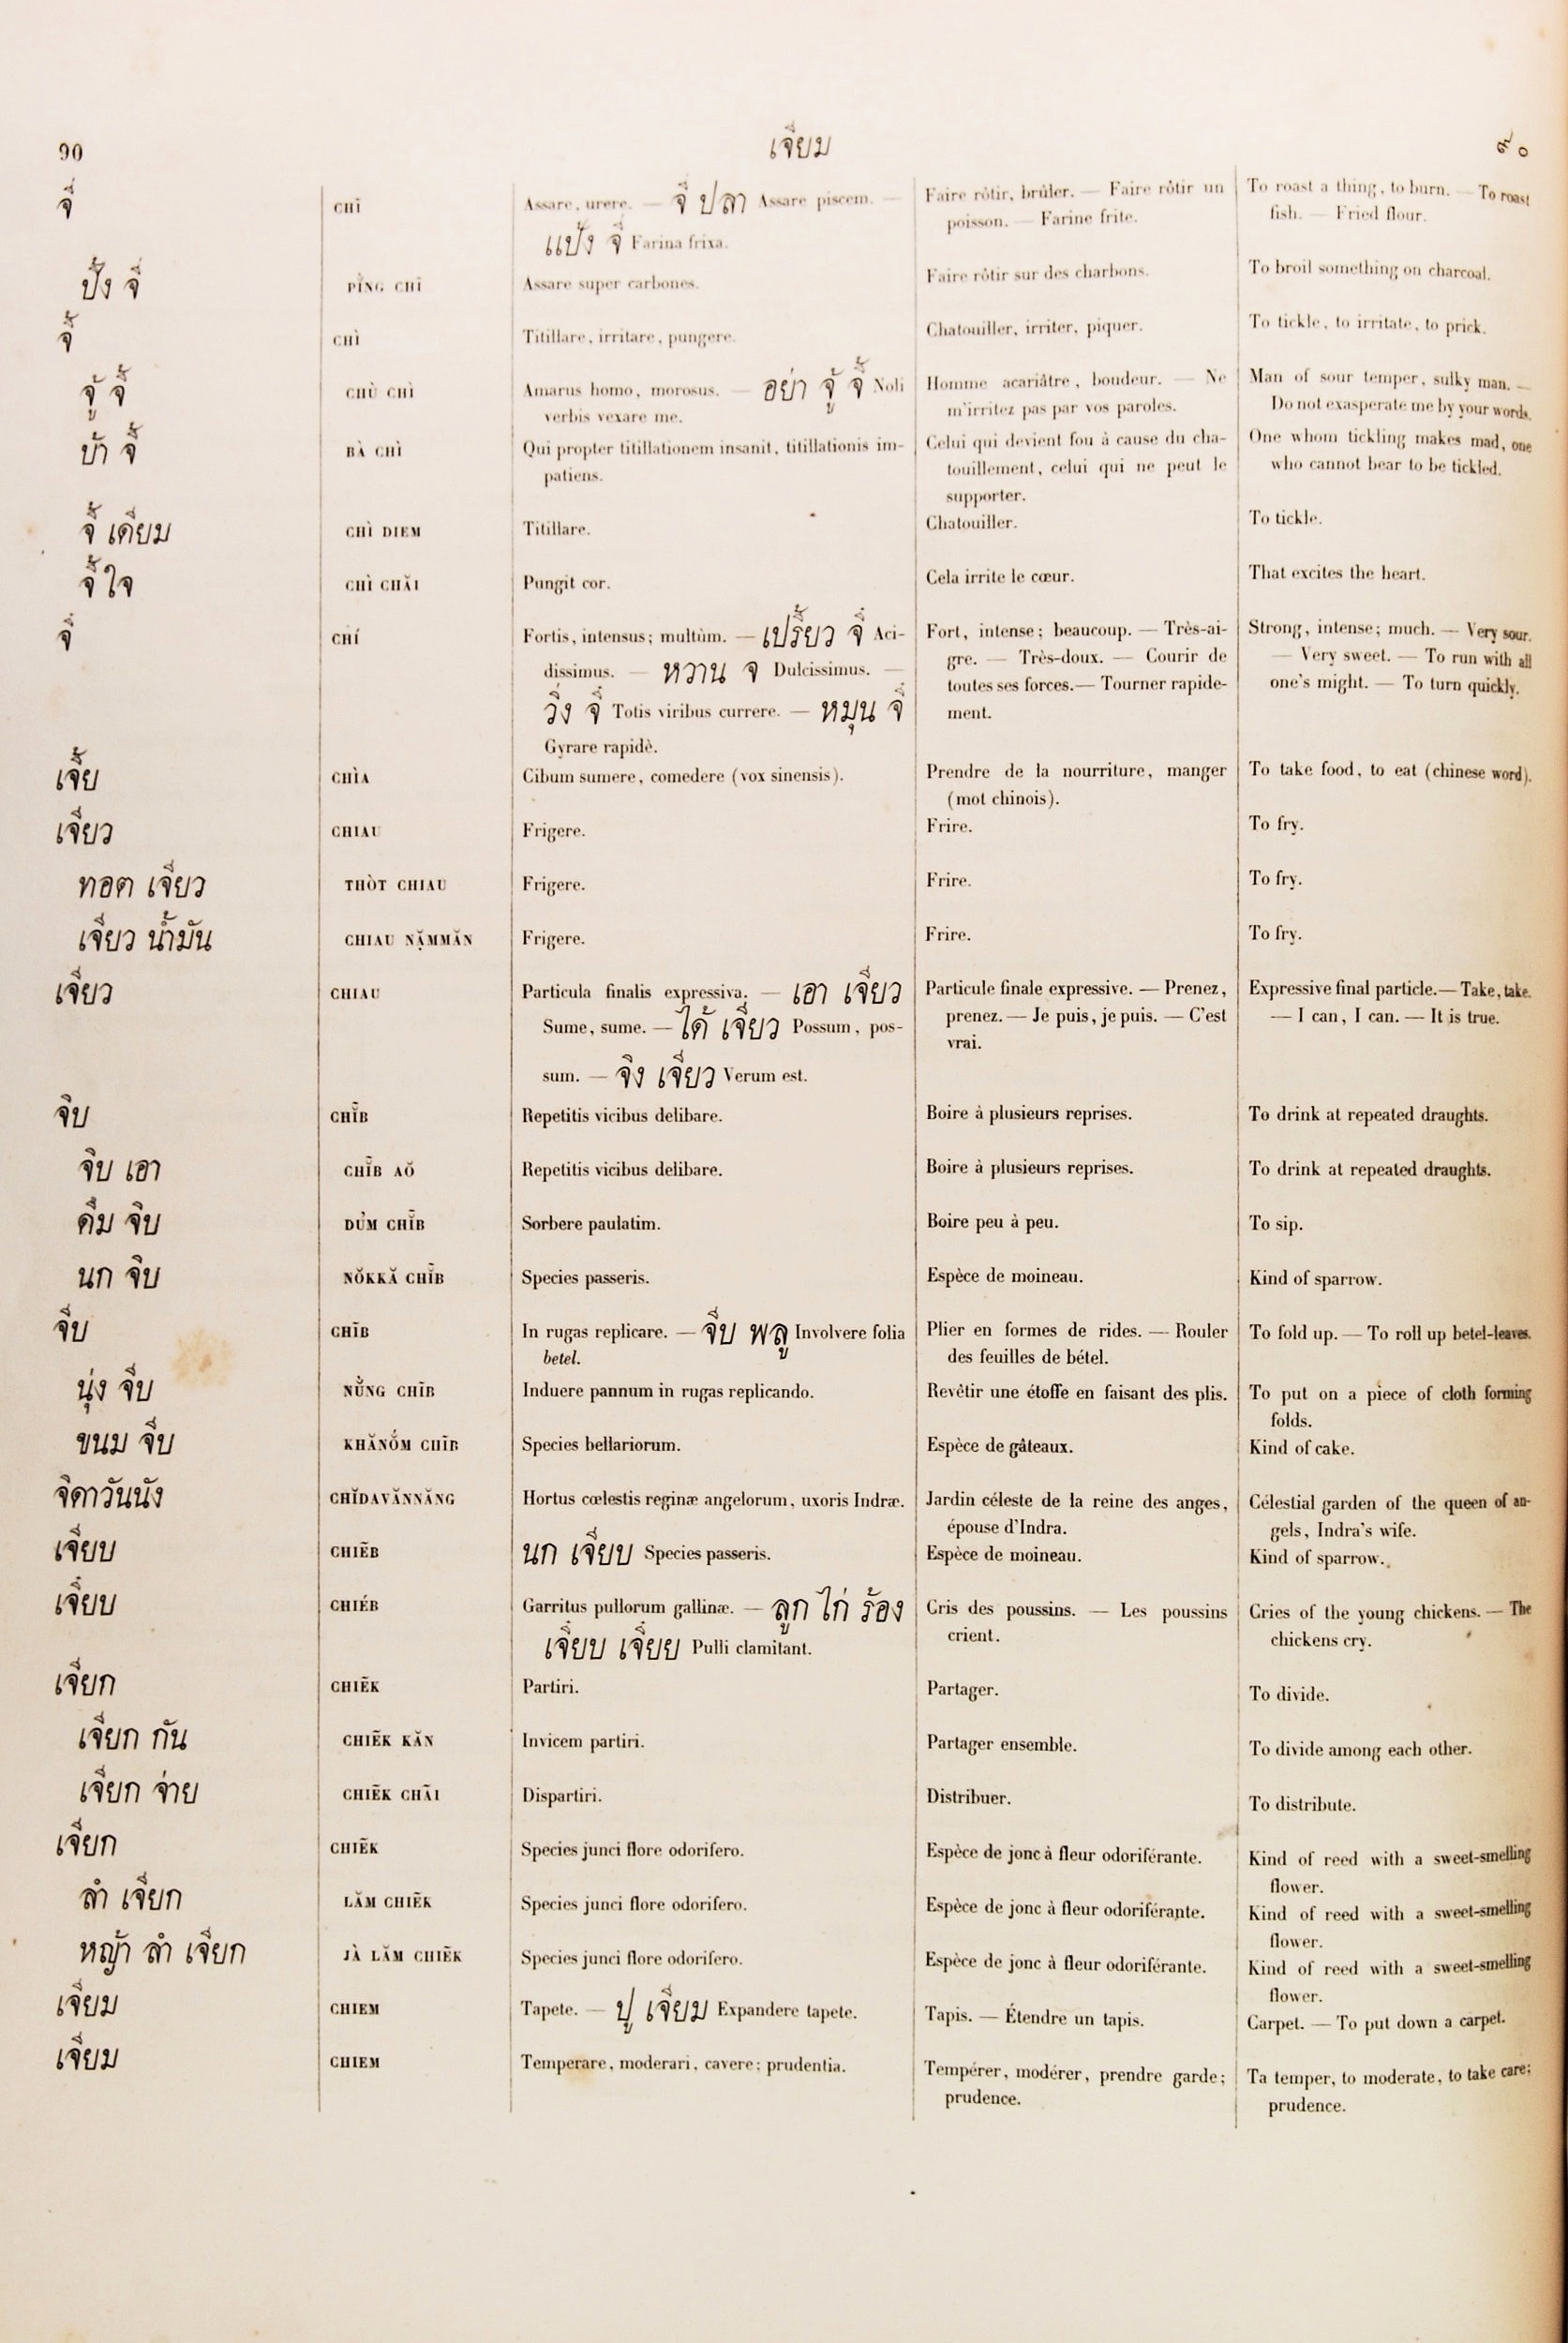 90 เจียม ๙๐
จี่ CHĪ Assare, urere. — จี่ ปลา Assare piscem. — Faire rôtir, brûler. — Faire rôtir un To roast a thing, to burn. — To roast
แป้ง จี่ Farina frixa. poisson. — Farine frite. fish. — Fried flour.
ปิ้ง จี่ PĬNG CHĪ Assare super carbones. Faire rôtir sur des charbons. To broil something on charcoal.
จี้ CHÌ Titillare, irritare, pungere. Chatouiller, irriter, piquer. To tickle, to irritate, to prick.
จู้ จี้ CHÙ CHÌ Amarus homo, morosus. — อย่า จู้ จี้ Noli Homme acariâtre, boudeur. — Ne Man of sour temper, sulky man. —
verbis vexare me. m'irritez pas par vos paroles. Do not exasperate me by your words.
บ้า จี้ BÀ CHÌ Qui propter titillationem insanit, titillationis im- Celui qui devient fou à cause du cha- One whom tickling makes mad, one
patiens. touillement, celui qui ne peut le who cannot bear to be tickled.
supporter.
จี้ เดียม CHÌ DIEM Titillare. Chatouiller. To tickle.
จี้ ใจ CHÌ CHĂI Pungit cor. Cela irrite le cœur. That excites the heart.
จี๋ CHÍ Fortis, intensus; multùm. — เปรี้ยว จี๋ Aci- Fort, intense; beaucoup. — Très-ai- Strong, intense; much. — Very sour.
dissimus. — หวาน จ Dulcissimus. — gre. — Très-doux. — Courir de — Very sweet. — To run with all
วิ่ง จี๋ Totis viribus currere. — หมุน จี๋ toutes ses forces. — Tourner rapide- one's might. — To turn quickly.
Gyrare rapidè. ment.
เจี้ย CHÌA Cibum sumere, comedere (vox sinensis). Prendre de la nourriture, manger To take food, to eat (chinese word).
(mot chinois).
เจียว CHIAU Frigere. Frire. To fry.
ทอต เจียว THÒT CHIAU Frigere. Frire. To fry.
เจียว น้ำมัน CHIAU NẶMMĂN Frigere. Frire. To fry.
เจียว CHIAU Particula finalis expressiva. — เอา เจียว Particule finale expressive. — Prenez, Expressive final particle. — Take, take.
Sume, sume. — ได้ เจียว Possum, pos- prenez. — Je puis, je puis. — C'est — I can, I can. — It is true.
sum. — จิง เจียว Verum est. vrai.
จิบ CHĬB Repetitis vicibus delibare. Boire à plusieurs reprises. To drink at repeated draughts.
จิบ เอา CHĬB AŎ Repetitis vicibus delibare. Boire à plusieurs reprises. To drink at repeated draughts.
ดื่ม จิบ DU'M CHĬB Sorbere paulatim. Boire peu à peu. To sip.
นก จิบ NŎKKĂ CHĬB Species passeris. Espèce de moineau. Kind of sparrow.
จีบ CHĪB In rugas replicare. — จีบ พลู Involvere folia Plier en formes de rides. — Rouler To fold up. — To roll up betel-leaves.
betel. des feuilles de bétel.
นุ่ง จีบ NŬNG CHĪB Induere pannum in rugas replicando. Revêtir une étoffe en faisant des plis. To put on a piece of cloth forming
folds.
ขนม จีบ KHĂNŎM CHĪB Species bellariorum. Espèce de gâteaux. Kind of cake.
จิดาวันนัง CHĬDAVĂNNĂNG Hortus cœlestis reginæ angelorum, uxoris Indræ. Jardin céleste de la reine des anges, Célestial garden of the queen of an-
épouse d'Indra. gels, Indra's wife.
เจียบ CHIĒB นก เจียบ Species passeris. Espèce de moineau. Kind of sparrow.
เจี๋ยบ CHIÉB Garritus pullorum gallinæ. — ลูก ไก่ ร้อง Cris des poussins. — Les poussins Cries of the young chickens. — The
เจี๋ยบ เจี๋ยย Pulli clamitant. crient. chickens cry.
เจียก CHIĒK Partiri. Partager. To divide.
เจียก กัน CHIĒK KĂN Invicem partiri. Partager ensemble. To divide among each other.
เจียก จ่าย CHIĒK CHĀI Dispartiri. Distribuer. To distribute.
เจียก CHIĒK Species junci flore odorifero. Espèce de jonc à fleur odoriférante. Kind of reed with a sweet-smelling
flower.
ลำ เจียก LĂM CHIĒK Species junci flore odorifero. Espèce de jonc à fleur odoriférante. Kind of reed with a sweet-smelling
flower.
หญ้า ลำ เจียก JÀ LĂM CHIĒK Species junci flore odorifero. Espèce de jonc à fleur odoriférante. Kind of reed with a sweet-smelling
flower.
เจียม CHIEM Tapete. — ปู เจียม Expandere tapete. Tapis. — Étendre un tapis. Carpet. — To put down a carpet.
เจียม CHIEM Temperare, moderari, cavere; prudentia. Tempérer, modérer, prendre garde; Ta temper, to moderate, to take care;
prudence. prudence.